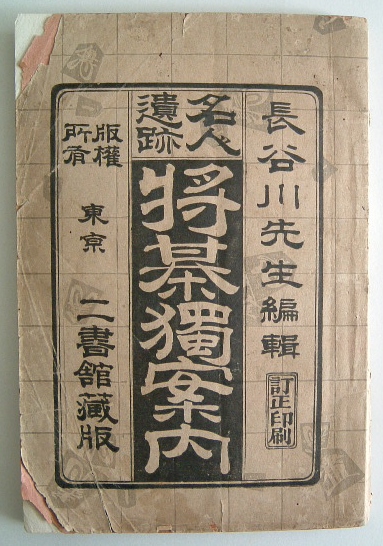 長谷川先生編輯
訂正印刷
名人
遺跡
将棊獨案内
版權
所有
東京 二書館藏版